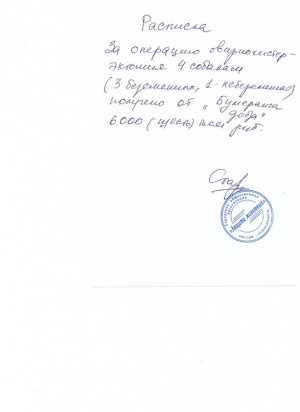 Расписка
За операцию овариогистер-
эктомия 4 собакам
(3 беременных, 1 - небеременная)
получено от „Бумеранга
добра"
6000 (шесть) тысяч руб.
"Защита животных"